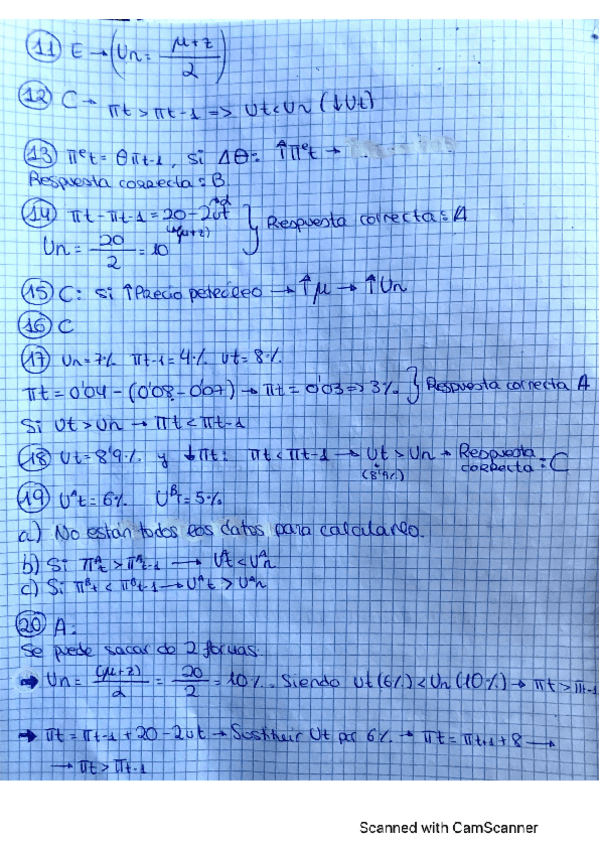 11 E → (Un = μ+z / 2)
12 C → πt > πt-1 => Ut < Un (↓Ut)
13 πet = θπt-1, si Δθ = ↑πet →
Respuesta correcta = B.
14 πt - πt-1 = 20 - 2ut } Respuesta correcta = A
Un = 20/2 = 10 (μ+z)
15 C: si ↑Precio petróleo → ↑μ → ↑Un
16 C
17 Un = 7% πt-1 = 4% Ut = 8%
πt = 0'04 - (0'08 - 0'07) → πt = 0'03 => 3% } Respuesta correcta A
Si Ut > Un → πt < πt-1
18 Ut = 8'9% y ↓πt: πt < πt-1 → Ut > Un → Respuesta correcta = C
(8'9%)
19 UAt = 6% UBt = 5%
a) No están todos los datos para calcularlo.
b) Si πAt > πAt-1 → UAt < UAn
c) Si πBt < πBt-1 → UAt > UAn
20 A:
Se puede sacar de 2 formas.
→ Un = (μ+z)/2 = 20/2 = 10%. Siendo Ut (6%) < Un (10%) → πt > πt-1
→ πt = πt-1 + 20 - 2ut → Sustituir Ut por 6% → πt = πt-1 + 8 →
→ πt > πt-1
Scanned with CamScanner